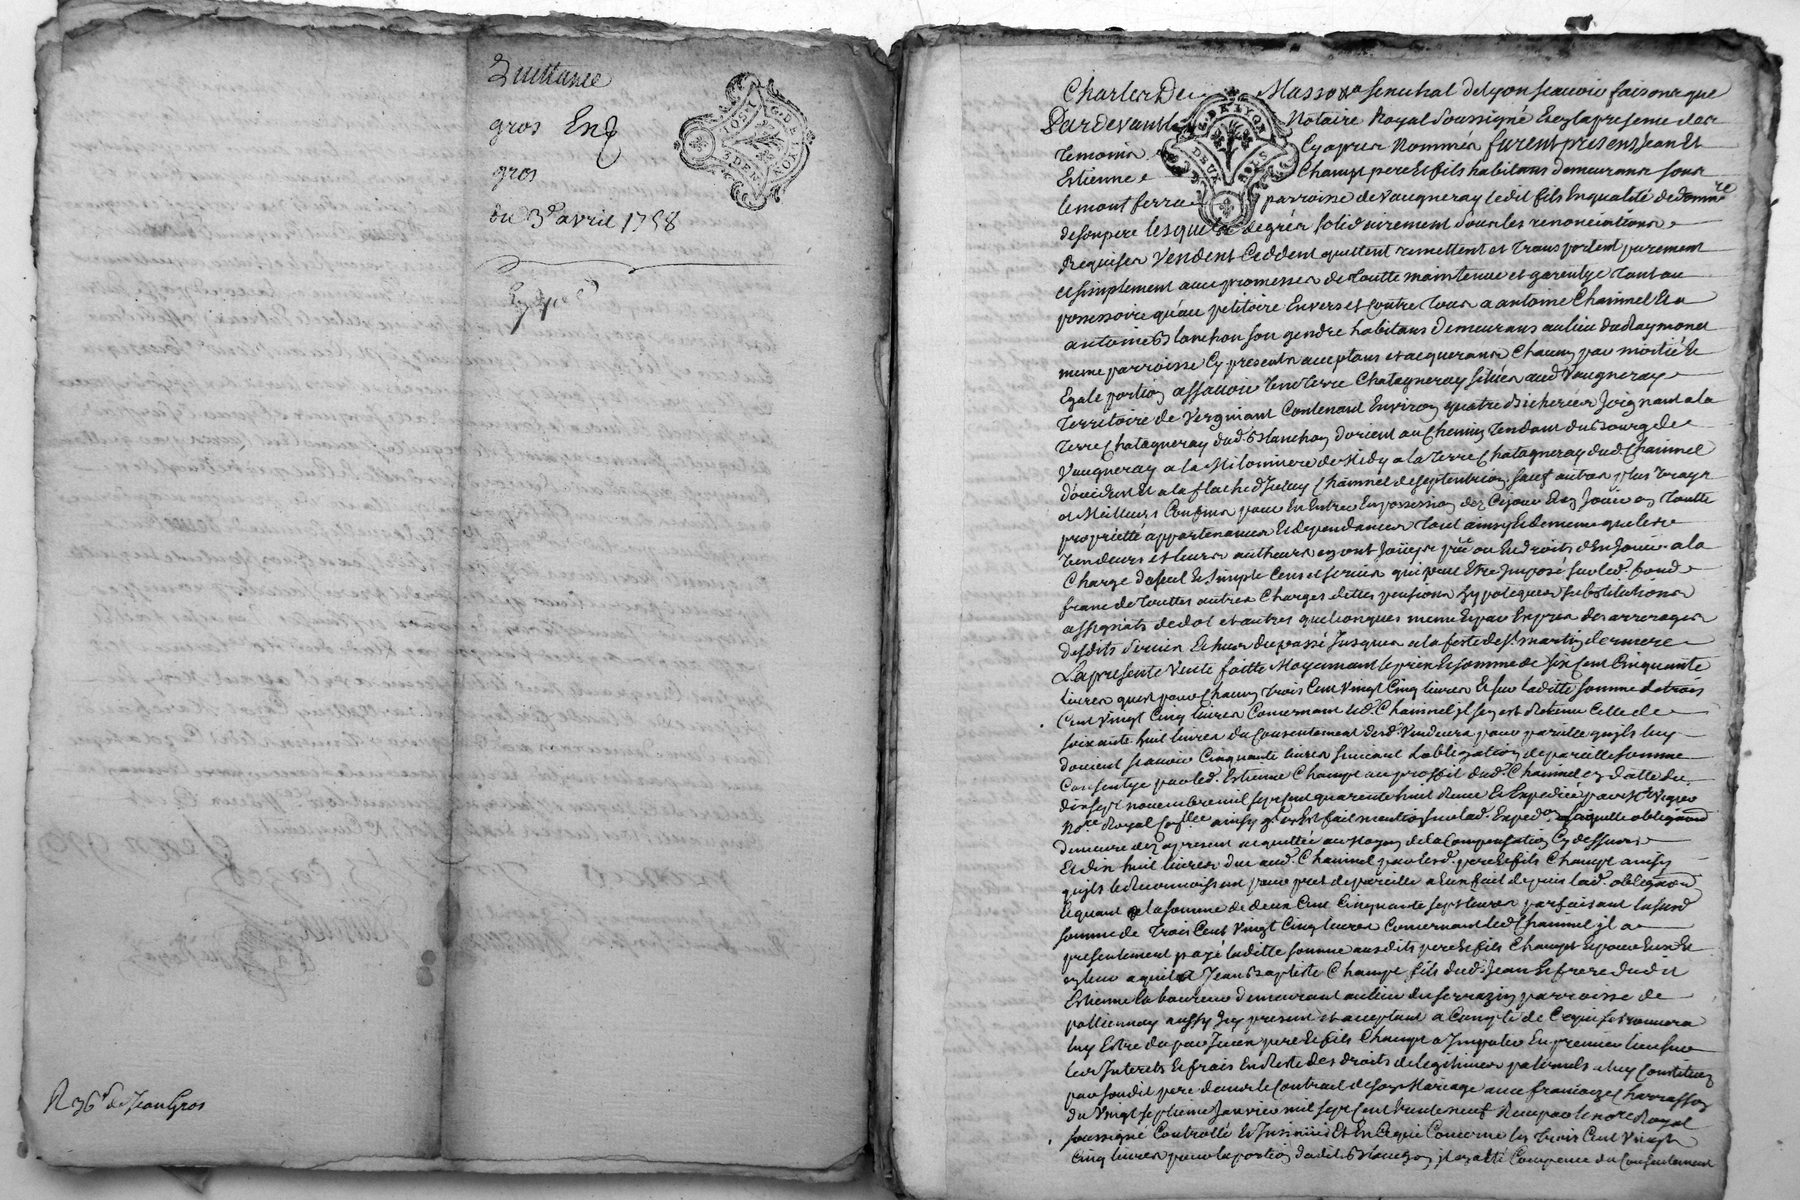 Quittance
gros En
gros
du 3e avril 1758
Expé
N 36 de Jean Gros
G. DE LYON
DEUX SOLS
Charles De Masso senechal de Lyon scavoir faisons que
Pardevant Notaire Royal soussigné Et en la presence des
temoins Cy apres Nommés furent presens Jean Et
Estienne Champt pere Et fils habitans demeurans sous
le mont ferra parroisse de Vaugneray ledit fils En qualité de donnre
de son pere lesquels de gré solidairement sous les renonciations
Requises Vendent Ceddent quittent remettent et Transportent purement
et simplement avec promesses de Toutte maintenue et garentye Tant au
possessoire qu'au petitoire Envers et Contre Tous a antoine Chainnel Et a
antoine Blanchon son gendre habitans demeurans au lieu du Raymond
meme parroisse Cy presents acceptans et acquerans Chacun par moitié Et
Egale portion assavoir Une Terre Chatagneray situés aud Vaugneray
Territoire de Vergniant Contenant Environ quatre Bicherées Joignant a la
Terre Chatagneray dud. Blanchon d'orient au Chemin Tendant du Bourg de
Vaugneray a la Milonniere de Midy a la Terre Chatagneray dud. Chainnel
d'occident Et a la flache d'Iceluy Chainnel de septentrion sauf autres plus Vrays
et Meilleurs Confins pour En Entrer En possession dez Cejour Et En Jouir en Toutte
proprietté appartenances Et dependances Tout ainsy Et de meme que lesd
Vendeurs et leurs autheurs en ont Joüy ou Eu droits d'En Jouir a la
Charge du seul Et simple Cens et servis qui peut Etre Imposé sur led. fond
franc de Touttes autres Charges dettes pensions hypoteques substitutions
assignats de dot et autres quelconques meme Et par Exprès des arrerages
desdits servis Echus du passé Jusques a la feste de St martin derniere
La presente Vente faitte Moyennant le prix Et somme de six Cent Cinquante
livres quest pour Chacun Trois Cent Vingt Cinq livres Et sur laditte somme de trois
Cent Vingt Cinq livres Concernant led. Chainnel il s'en est Retenu Celle de
soixante huit livres du Consentement desd. Vendeurs pour pareille qu'ils luy
doivent scavoir Cinquante livres suivant L'obligation de pareille somme
Consentye par led. Estienne Champt au proffit dud. Chainnel en datte du
dix sept novembre mil sept cent quarente huit Reçue Et Expediée par Me Vignier
Nore Royal ainsy qu'en Est fait mention sur lad. Expedon laquelle obligaon
demeure dez a present acquittée au Moyen de la Compensation Cy dessus
Et dix huit livres due aud. Chainnel par lesd. pere Et fils Champt ainsy
qu'ils le Reconnoissent pour pret de pareille a Eux fait depuis lad. obligaon
Et quant a la somme de deux Cent Cinquante sept livres parfaisant lasusd
somme de Trois Cent Vingt Cinq livres Concernant led Chainnel il a
presentement payé laditte somme ausdits pere Et fils Champt Et pour Eux Et
en leur aquit a Jean Baptiste Champt fils dud. Jean Et frere dudit
Estienne laboureur demeurant au lieu du serrazin parroisse de
pollionnay aussy Icy present et acceptant a Compte de Ce qui se trouvera
luy Estre du par Iceux pere Et fils Champt a Imputer En premier lieu sur
les Interets Et frais En Reste des droits de legitimes paternels a luy Constitués
par son dit pere dans le Contract de son Mariage avec françoise Charrasson
du Vingt septieme Janvier mil sept Cent trente neuf Recu par le nore Royal
soussigné Controllé Et Insinüé Et En Ce qui Concerne les Trois Cent Vingt
Cinq livres pour la portion dudit Blanchon il a eté Compensé du Consentement